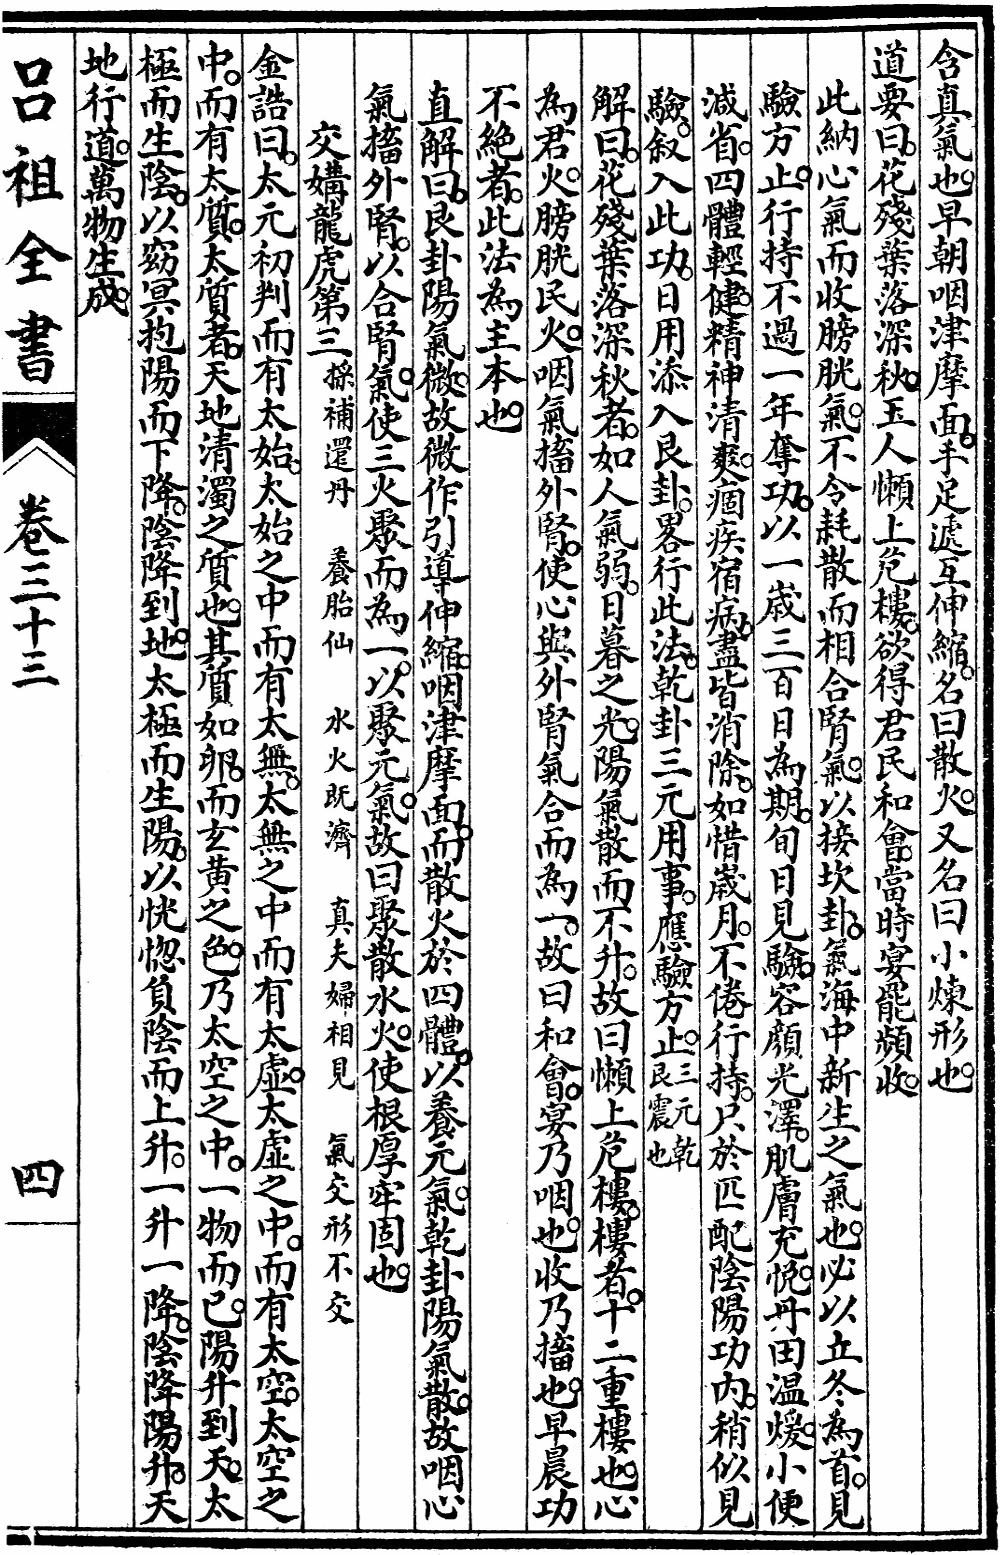 含真氣也。早朝咽津摩面。手足遞互伸縮。名曰散火。又名曰小煉形也。
道要曰。花殘葉落深秋。玉人懶上危樓。欲得君民和會。當時宴罷頻收。
此納心氣而收膀胱氣。不令耗散而相合腎氣。以接坎卦。氣海中新生之氣也。必以立冬為首。見
驗方止。行持不過一年奪功。以一歲三百日為期。旬日見驗。容顏光澤。肌膚充悅。丹田温煖。小便
減省。四體輕健。精神清爽。痼疾宿病。盡皆消除。如惜嵗月。不倦行持。只於匹配陰陽功内。稍似見
驗。敘入此功。日用添入艮卦。畧行此法。乾卦三元用事。應驗方止。三元乾艮震也
解曰。花殘葉落深秋者。如人氣弱。日暮之光。陽氣散而不升。故曰懶上危樓。樓者。十二重樓也。心
為君火。膀胱民火。咽氣搐外腎。使心與外腎氣合而為一。故曰和會。宴乃咽也。收乃搐也。早晨功
不絶者。此法為主本也。
直解曰。艮卦陽氣微。故微作引導伸縮。咽津摩面。而散火於四體。以養元氣。乾卦陽氣散。故咽心
氣搐外腎。以合腎氣。使三火聚而為一。以聚元氣。故曰聚散水火。使根厚牢固也。
交媾龍虎第三 採補還丹 養胎仙 水火既濟 真夫婦相見 氣交形不交
金誥曰。太元初判而有太始。太始之中而有太無。太無之中而有太虛。太虛之中。而有太空。太空之
中。而有太質。太質者。天地清濁之質也。其質如卵。而玄黄之色。乃太空之中。一物而已。陽升到天。太
極而生陰。以窈冥抱陽而下降。陰降到地。太極而生陽。以恍惚負陰而上升。一升一降。陰降陽升。天
地行道。萬物生成。
吕祖全書
卷三十三
四